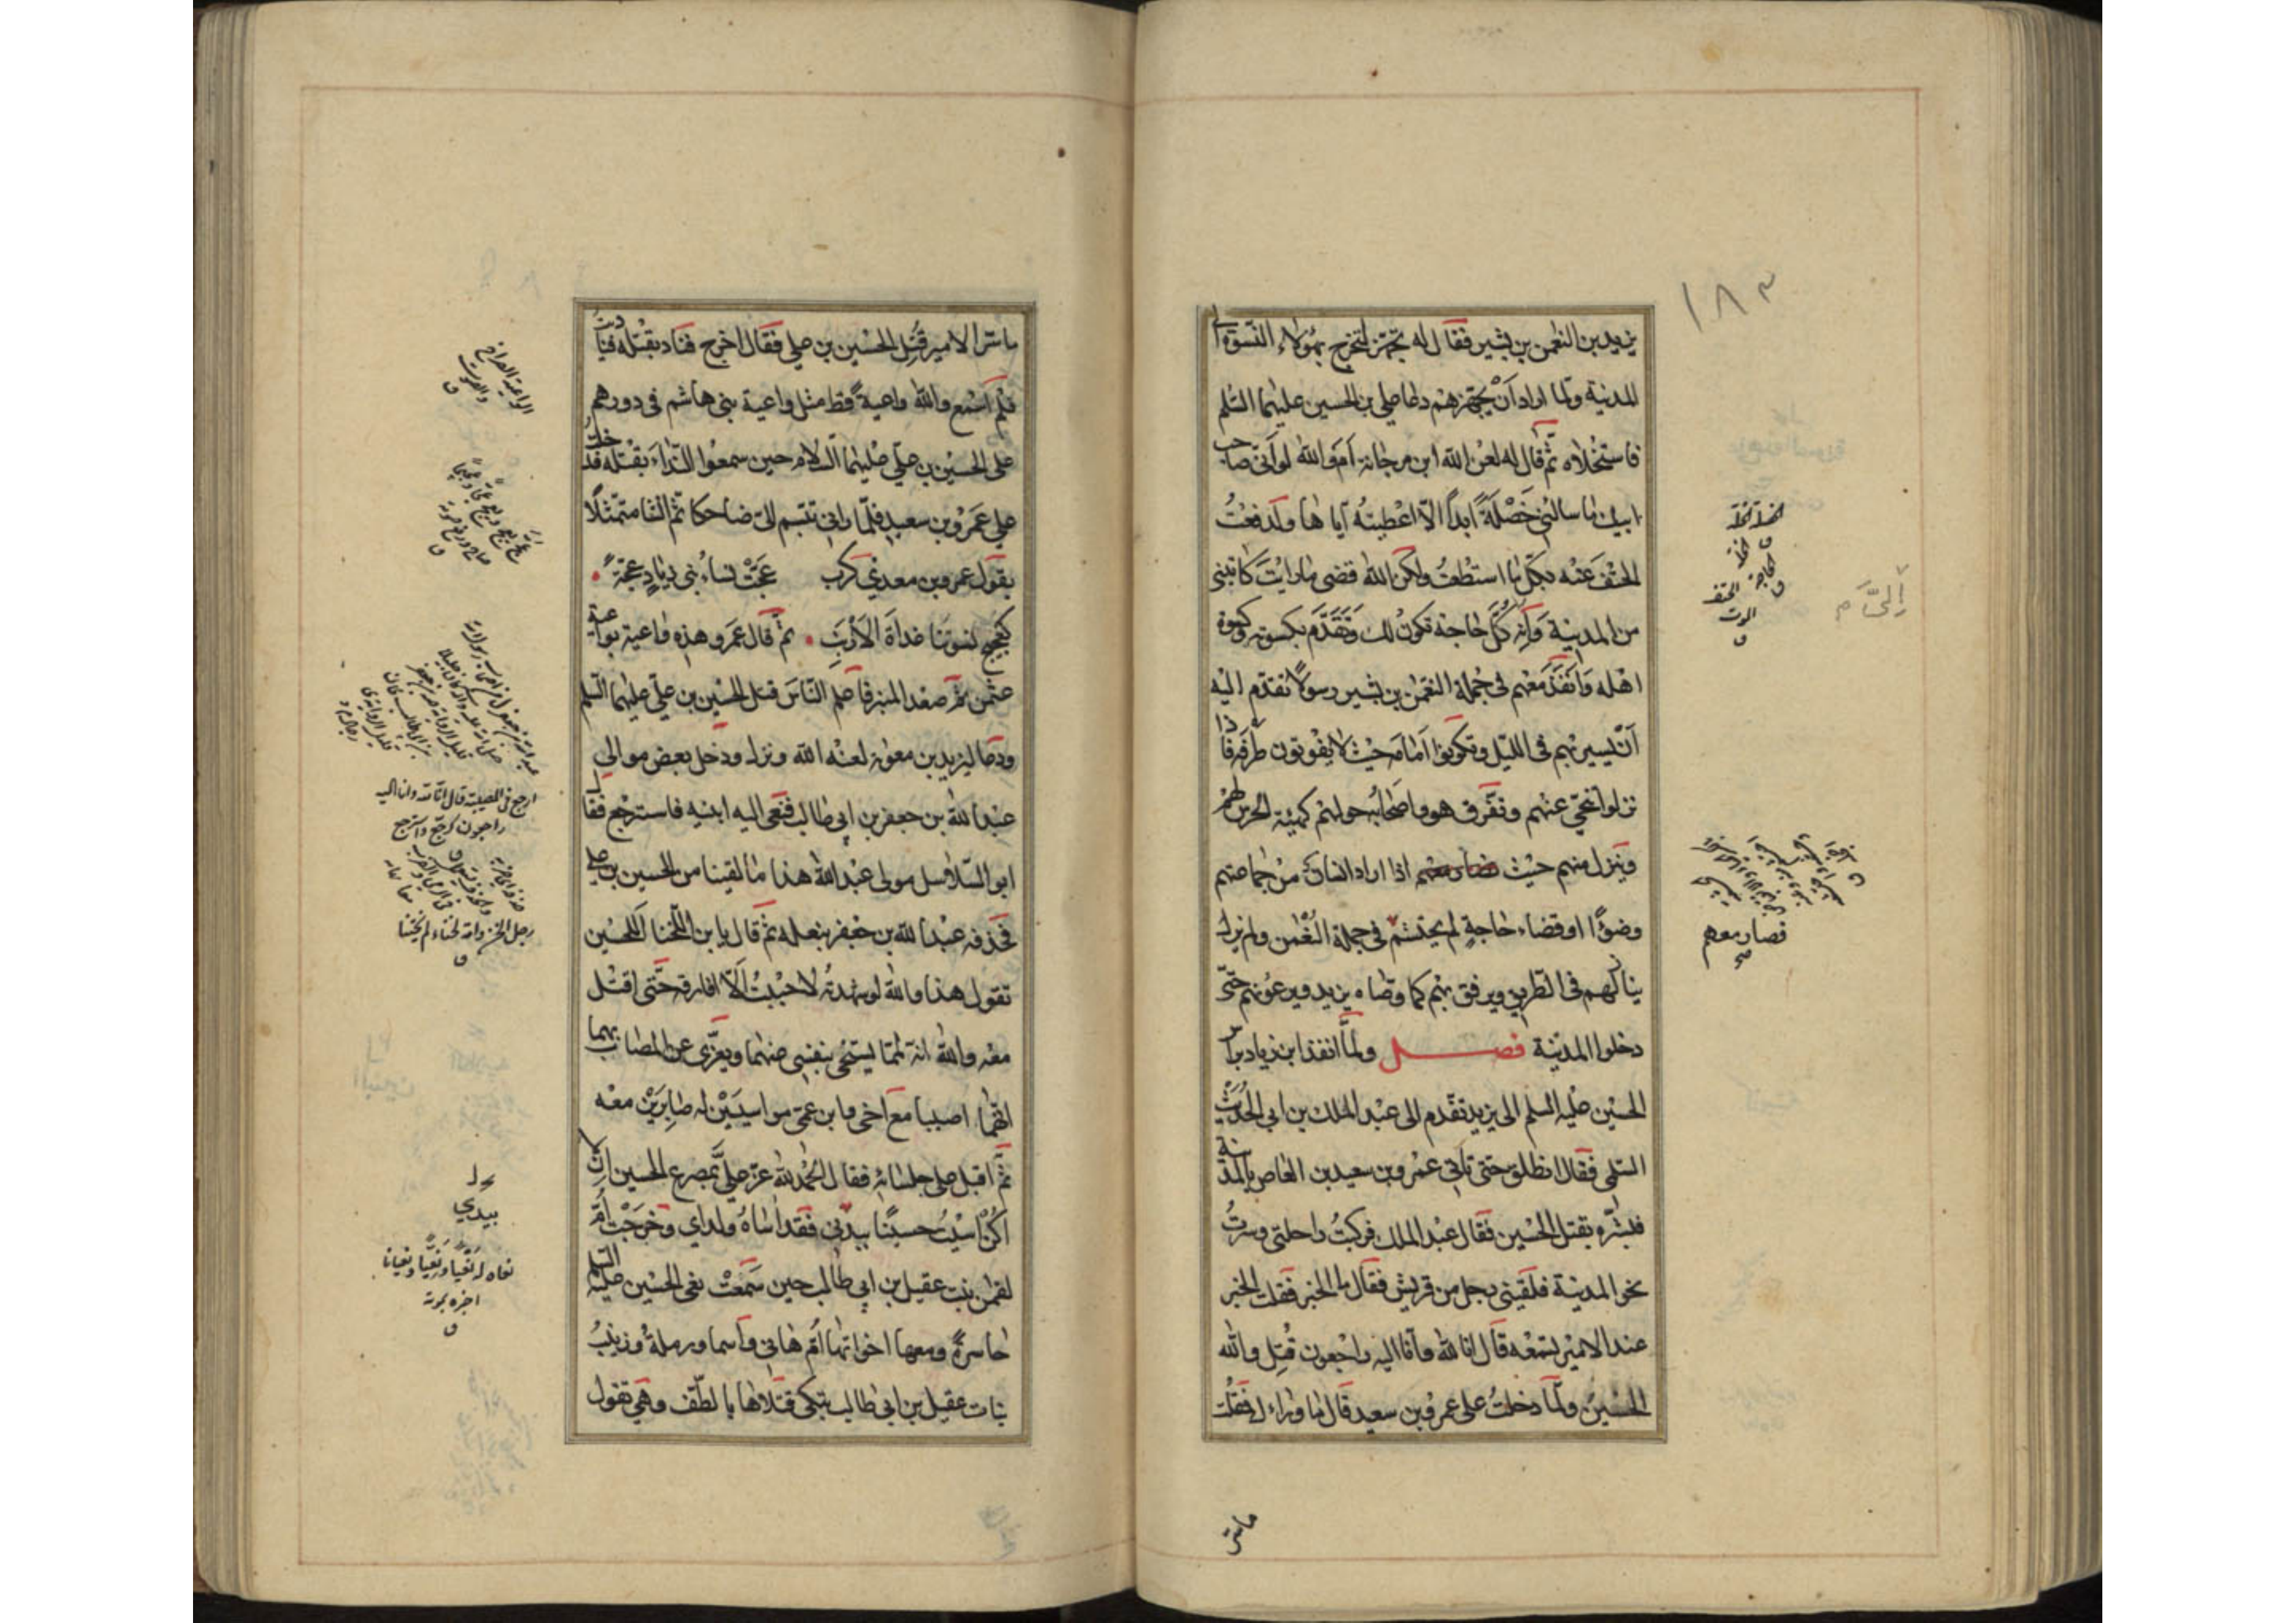 ١٨٣
يزيد بن النعمن بن بشير فقال له تجهز لتخرج بهؤلاء النسوة الى
المدينة ولما اراد أن يجهزهم دعا علي بن الحسين عليهما السلم
فاستخلاه ثم قال له لعن الله ابن مرجانة أم والله لو أني صاحب
ابيك ما سالني خصلة ابداً الا اعطيته اياها ولدفعت
الحتف عنه بكل ما استطعت ولكن الله قضى ما رايت كاتبني
من المدينة وأنه كل حاجة تكون لك وتقدم بكسوته وكسوة
اهله وانفذ معهم في جملة النعمن بن بشير رسولاً تقدم اليه
أن يسير بهم في الليل ويكونوا أمامه حيث لا يفوتون طرفه فاذا
نزلوا تنحى عنهم وتفرق هو واصحابه حولهم كهيئة الحرس لهم
وينزل منهم حيث اذا اراد انسان من جماعتهم
وضوًا او قضاء حاجة لم يحتشم في جملة النعمن ولم يزل
ينازلهم في الطريق ويرفق بهم كما وصاه يزيد ويرعونهم حتى
دخلوا المدينة فصل ولما انفذ ابن زياد براس
الحسين عليه السلم الى يزيد تقدم الى عبد الملك بن ابي الحديث
السلمي فقال انطلق حتى تاتي عمرو بن سعيد بن العاص بالمدينة
فبشره بقتل الحسين فقال عبد الملك فركبت راحلتي وسرت
نحو المدينة فلقيني رجل من قريش فقال ما الخبر فقلت الخبر
عند الامير تسمعه قال انا لله وانا اليه راجعون قتل والله
الحسين ولما دخلت على عمرو بن سعيد قال ما وراءك فقلت
فصار معهم
صح
ما سر
ما سر الامير قتل الحسين بن علي فقال اخرج فناد بقتله فناديت
فلم اسمع والله واعية قط مثل واعية بني هاشم في دورهم
على الحسين بن علي عليهما السلام حين سمعوا النداء بقتله فدخلت
على عمرو بن سعيد فلما راني تبسم الي ضاحكا ثم انشا متمثلًا
بقول عمرو بن معدي كرب عجت نساء بني زياد عجة
كعجيج نسوتنا غداة الارنب ثم قال عمرو هذه واعية بواعية
عثمن ثم صعد المنبر فاعلم الناس قتل الحسين بن علي عليهما السلم
ودعا ليزيد بن معوية لعنه الله ونزل ودخل بعض موالي
عبد الله بن جعفر بن ابي طالب فنعى اليه ابنيه فاسترجع فقال
ابو السلاسل مولى عبد الله هذا ما لقينا من الحسين بن علي
فحذفه عبد الله بن جعفر بنعله ثم قال يا بن اللخنا اللحسين
تقول هذا والله لو شهدته لاحببت ألا افارقه حتى اقتل
معه والله انه لمما يسخى بنفسي عنهما ويعزى عن المصاب بهما
انهما اصيبا مع اخي وابن عمي مواسيين له صابرين معه
ثم اقبل على جلسائه فقال الحمد لله عز علي بمصرع الحسين ان لا
اكن آسيت حسينًا بيدي فقد آساه ولداي وخرجت أم
لقمن بنت عقيل بن ابي طالب حين سمعت نعي الحسين عليه السلم
حاسرة ومعها اخواتها أم هاني واسما ورملة وزينب
بنات عقيل بن ابي طالب تبكي قتلاها بالطف وهي تقول
الواعية الصراخ
والصوت
ارجع في المصيبة قال انا لله وانا اليه
راجعون كرجع واسترجع
بيدي
نعاه له نعيا ونعيّا ونعيانا
اخبره بموته